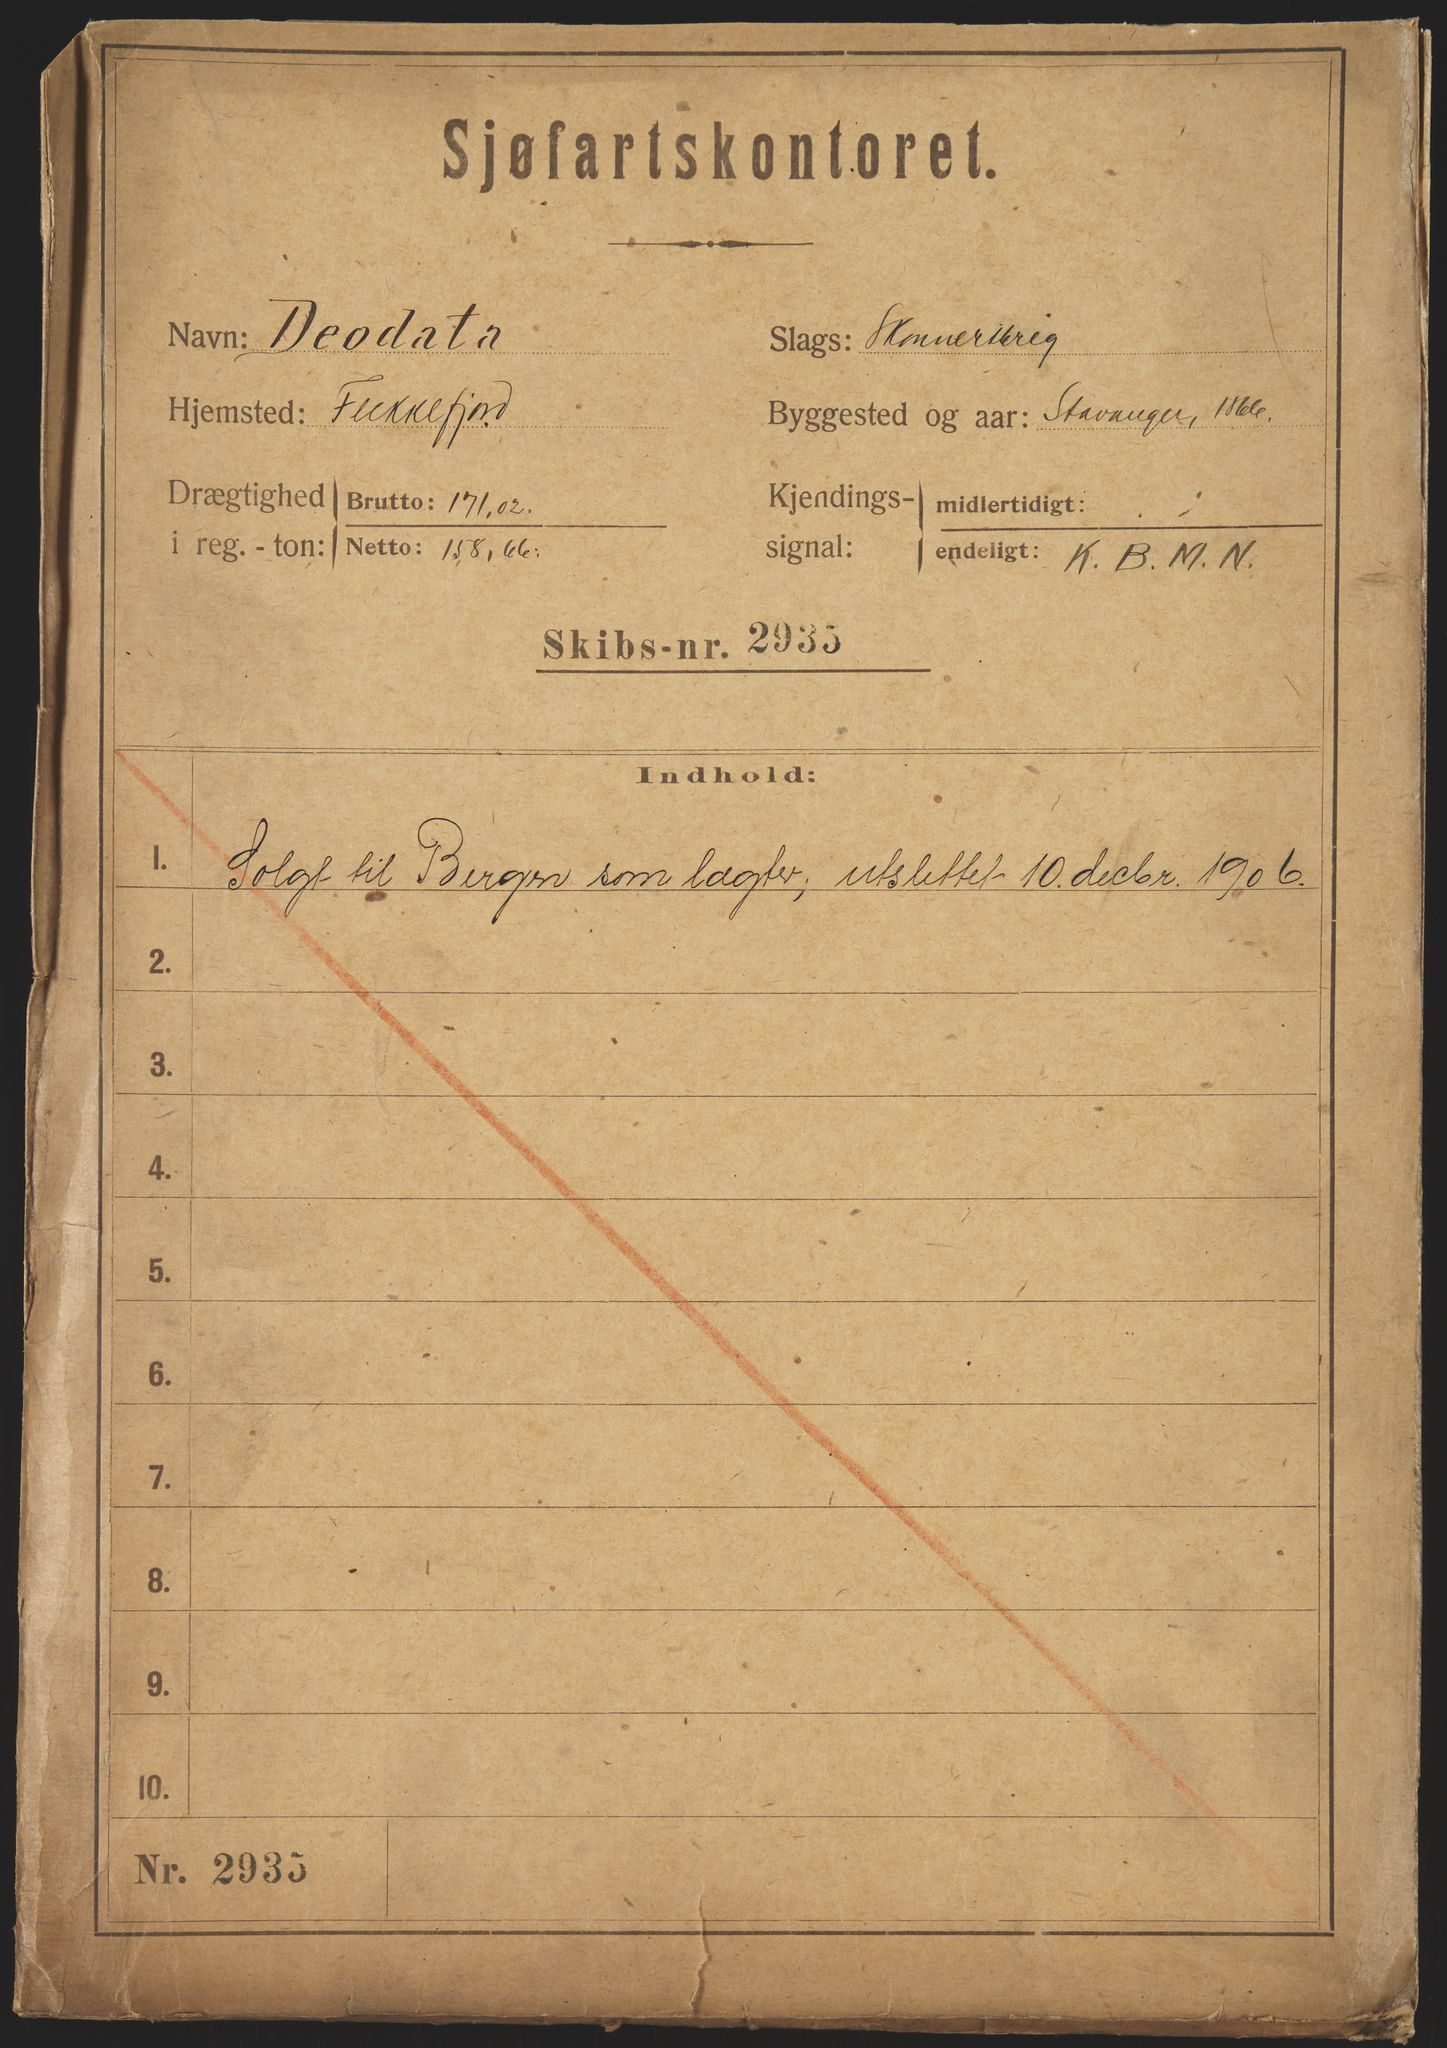 Sjøfartskontoret.
Navn: Deodata
Slags: Skonnertbrig
Hjemsted: Flekkefjord
Byggested og aar: Stavanger, 1866.
Drægtighed i reg.-ton: Brutto: 171,02.
Netto: 158,66.
Kjendings-signal: midlertidigt:
endeligt: K. B. M. N.
Skibs-nr. 2935
Indhold:
1. Solgt til Bergen som lægter; utslettet 10. decbr. 1906.
2.
3.
4.
5.
6.
7.
8.
9.
10.
Nr. 2935